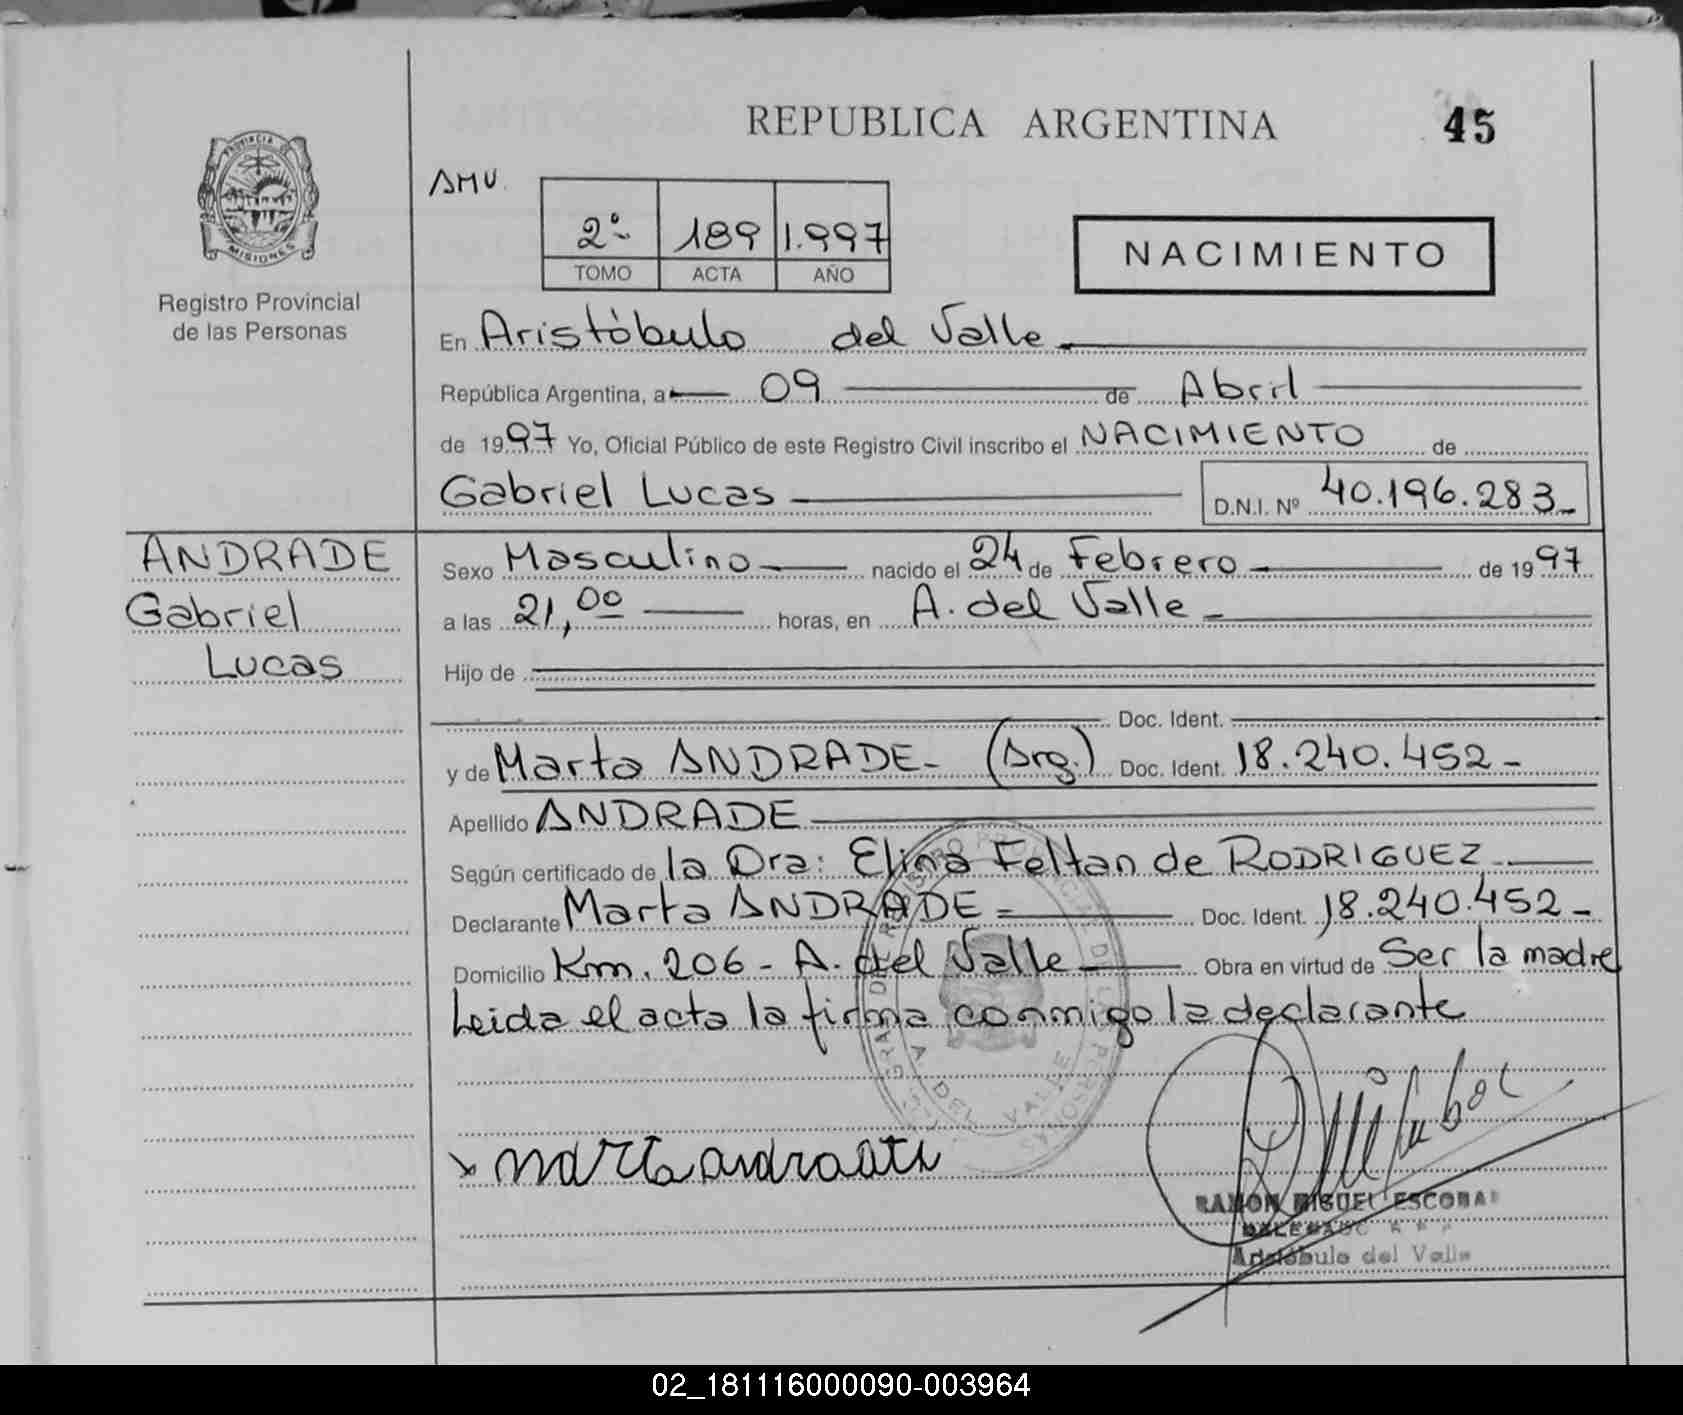 REPUBLICA ARGENTINA
45
PROVINCIA DE
MISIONES
Registro Provincial
de las Personas
AMU.
2º 189 1.997
TOMO ACTA AÑO
NACIMIENTO
En Aristóbulo del Valle
República Argentina, a 09 de Abril
de 1997 Yo, Oficial Público de este Registro Civil inscribo el NACIMIENTO de
Gabriel Lucas D.N.I. Nº 40.196.283
ANDRADE
Gabriel
Lucas
Sexo Masculino nacido el 24 de Febrero de 1997
a las 21,00 horas, en A. del Valle
Hijo de
Doc. Ident.
y de Marta ANDRADE- (Arg.) Doc. Ident. 18.240.452-
Apellido ANDRADE
Según certificado de la Dra: Elina Feltan de RODRIGUEZ
Declarante Marta ANDRADE Doc. Ident. 18.240.452-
Domicilio Km. 206 - A. del Valle Obra en virtud de Ser la madre
Leida el acta la firma conmigo la declarante
A. DEL VALLE
RAMON MIGUEL ESCOBAR
Aristóbulo del Valle
02_181116000090-003964